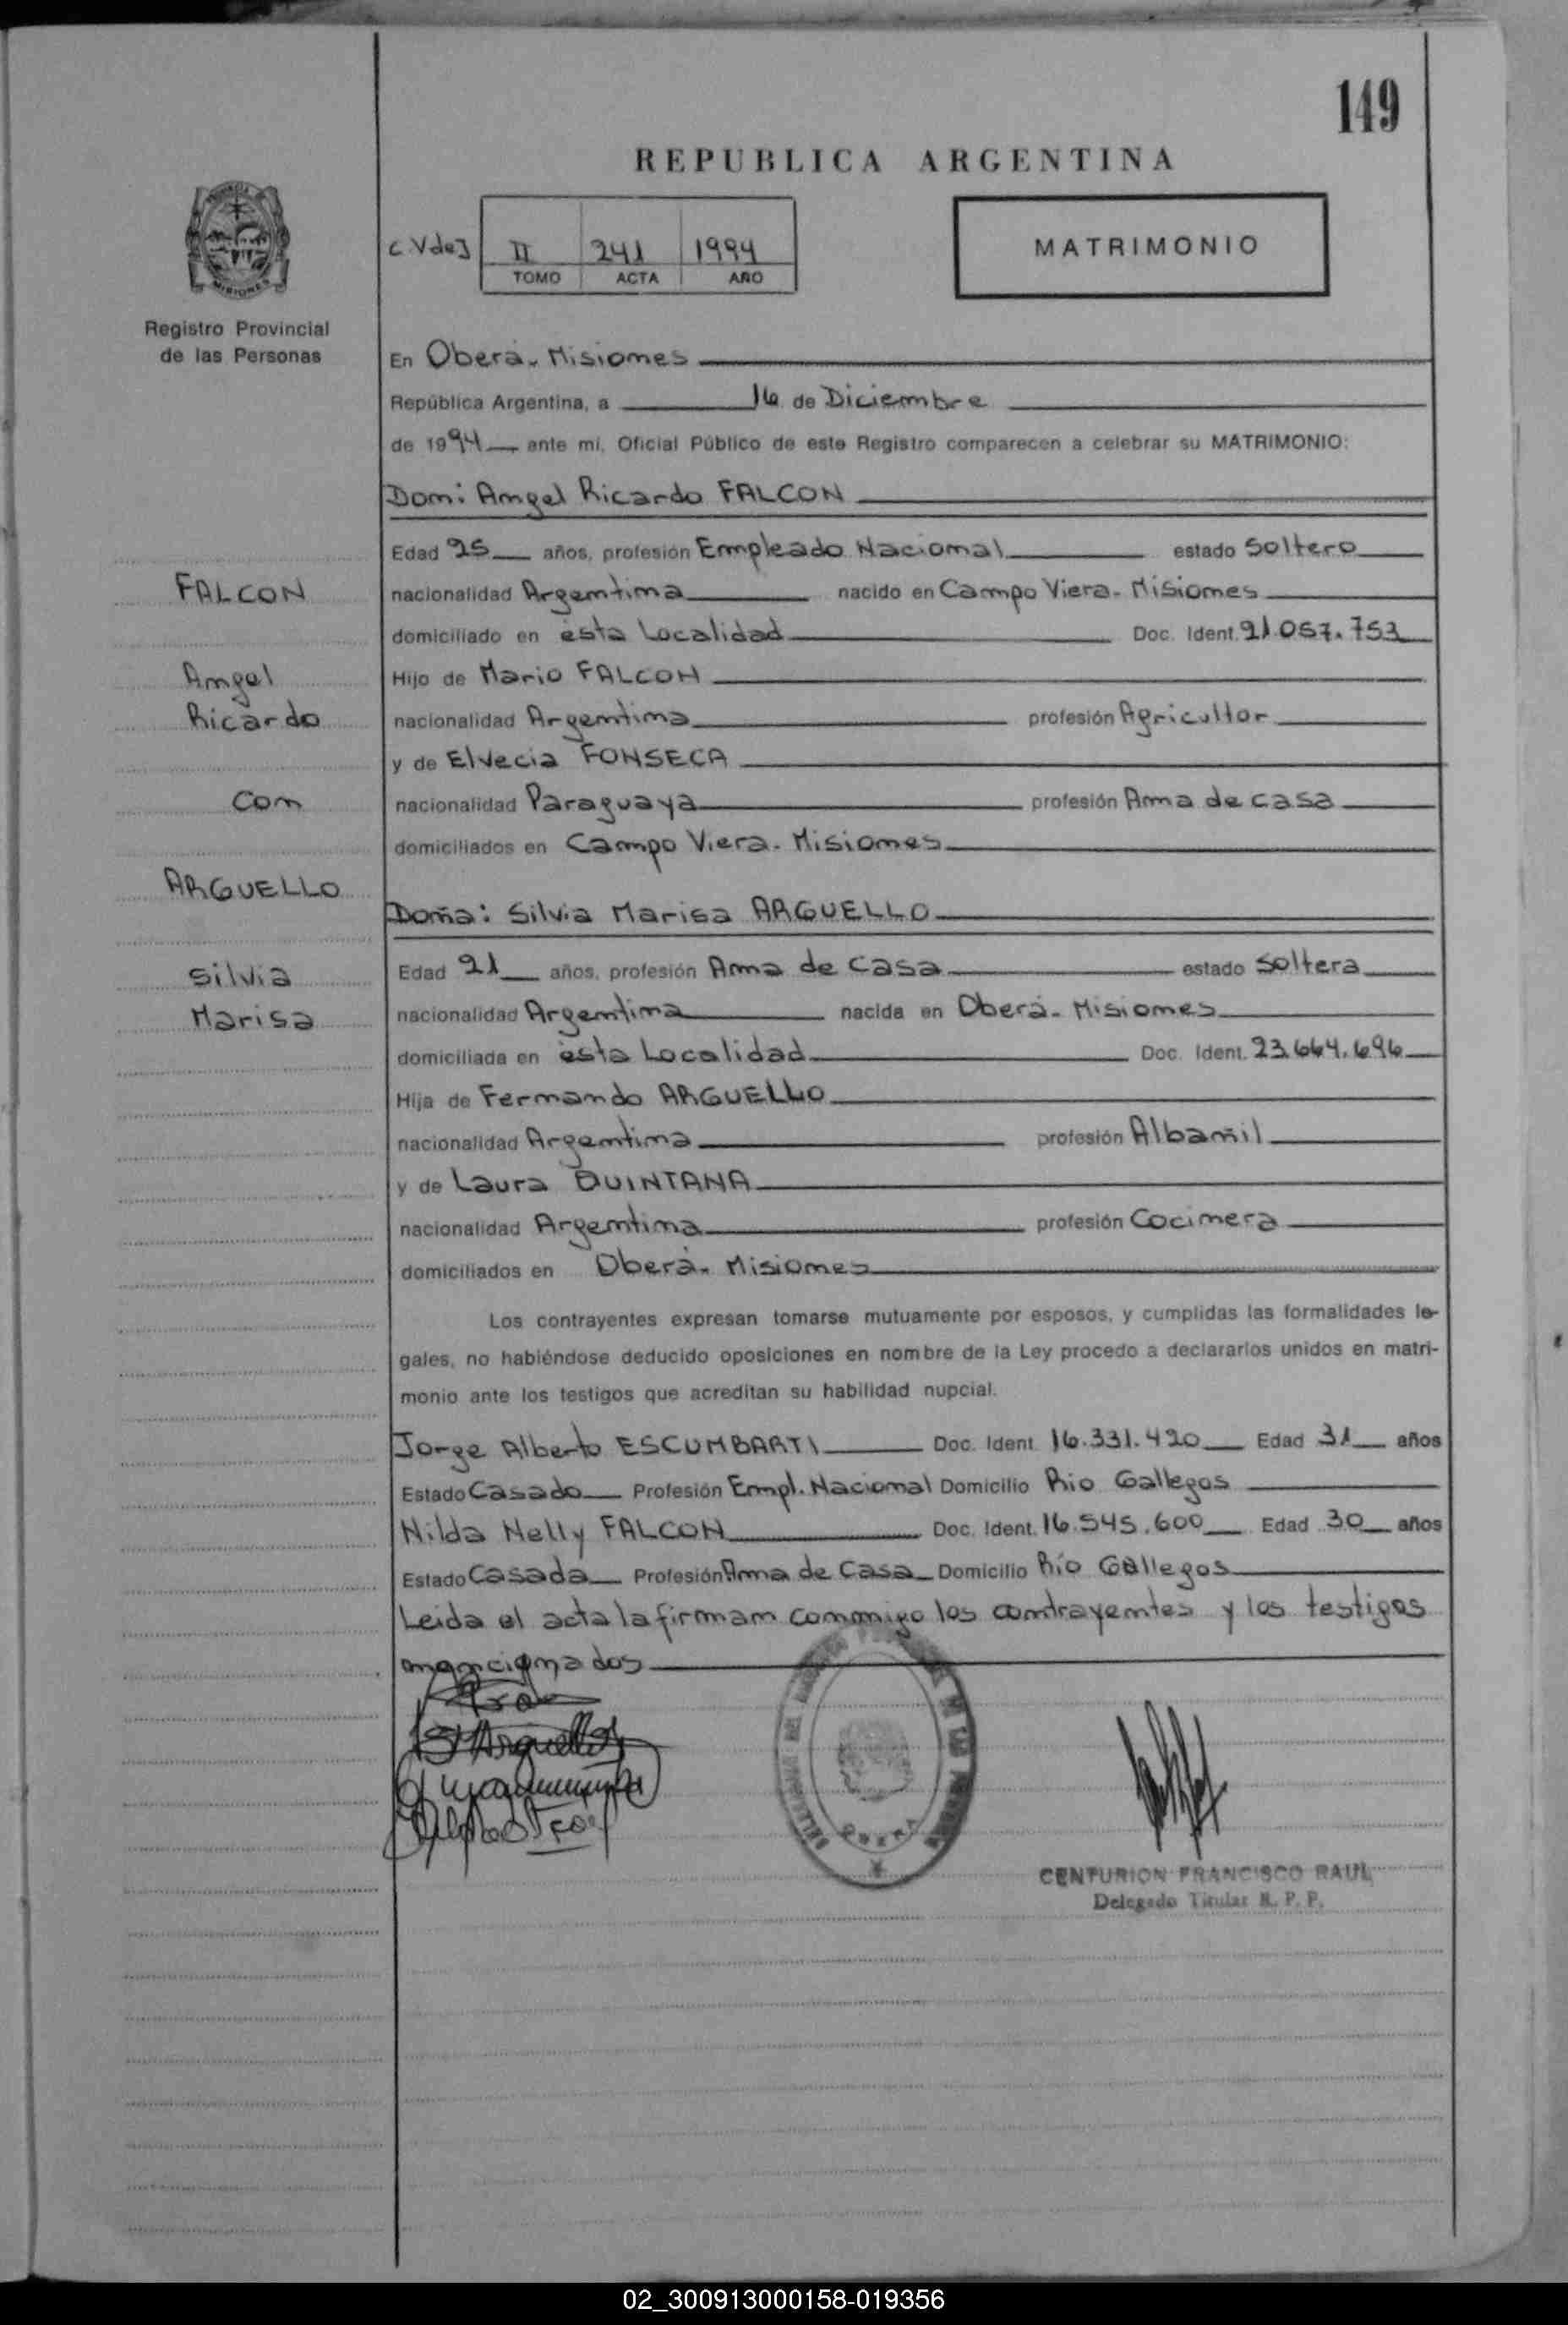 149
REPUBLICA ARGENTINA
II 241 1994
TOMO ACTA AÑO
MATRIMONIO
Registro Provincial
de las Personas
En Oberá - Misiones
República Argentina, a 16 de Diciembre
de 1994 ante mi, Oficial Público de este Registro comparecen a celebrar su MATRIMONIO:
Don: Angel Ricardo FALCON
Edad 25 años, profesión Empleado Nacional estado Soltero
FALCON
nacionalidad Argentina nacido en Campo Viera - Misiones
domiciliado en ésta Localidad Doc. Ident. 21.057.753
Angel
Hijo de Mario FALCON
Ricardo
nacionalidad Argentina profesión Agricultor
y de Elvecia FONSECA
Con
nacionalidad Paraguaya profesión Ama de casa
domiciliados en Campo Viera - Misiones
ARGUELLO
Doña: Silvia Marisa ARGUELLO
Silvia
Edad 21 años, profesión Ama de Casa estado Soltera
Marisa
nacionalidad Argentina nacida en Oberá - Misiones
domiciliada en ésta Localidad Doc. Ident. 23.664.696
Hija de Fernando ARGUELLO
nacionalidad Argentina profesión Albañil
y de Laura QUINTANA
nacionalidad Argentina profesión Cocinera
domiciliados en Oberá - Misiones
Los contrayentes expresan tomarse mutuamente por esposos, y cumplidas las formalidades le-
gales, no habiéndose deducido oposiciones en nombre de la Ley procedo a declararlos unidos en matri-
monio ante los testigos que acreditan su habilidad nupcial.
Jorge Alberto ESCUMBARTI Doc. Ident. 16.331.420 Edad 31 años
Estado Casado Profesión Empl. Nacional Domicilio Rio Gallegos
Nilda Nelly FALCON Doc. Ident. 16.545.600 Edad 30 años
Estado Casada Profesión Ama de Casa Domicilio Rio Gallegos
Leida el acta la firman conmigo los contrayentes y los testigos
mencionados
Arguello
OBERA
CENTURION FRANCISCO RAUL
Delegado Titular R. P. P.
02_300913000158-019356